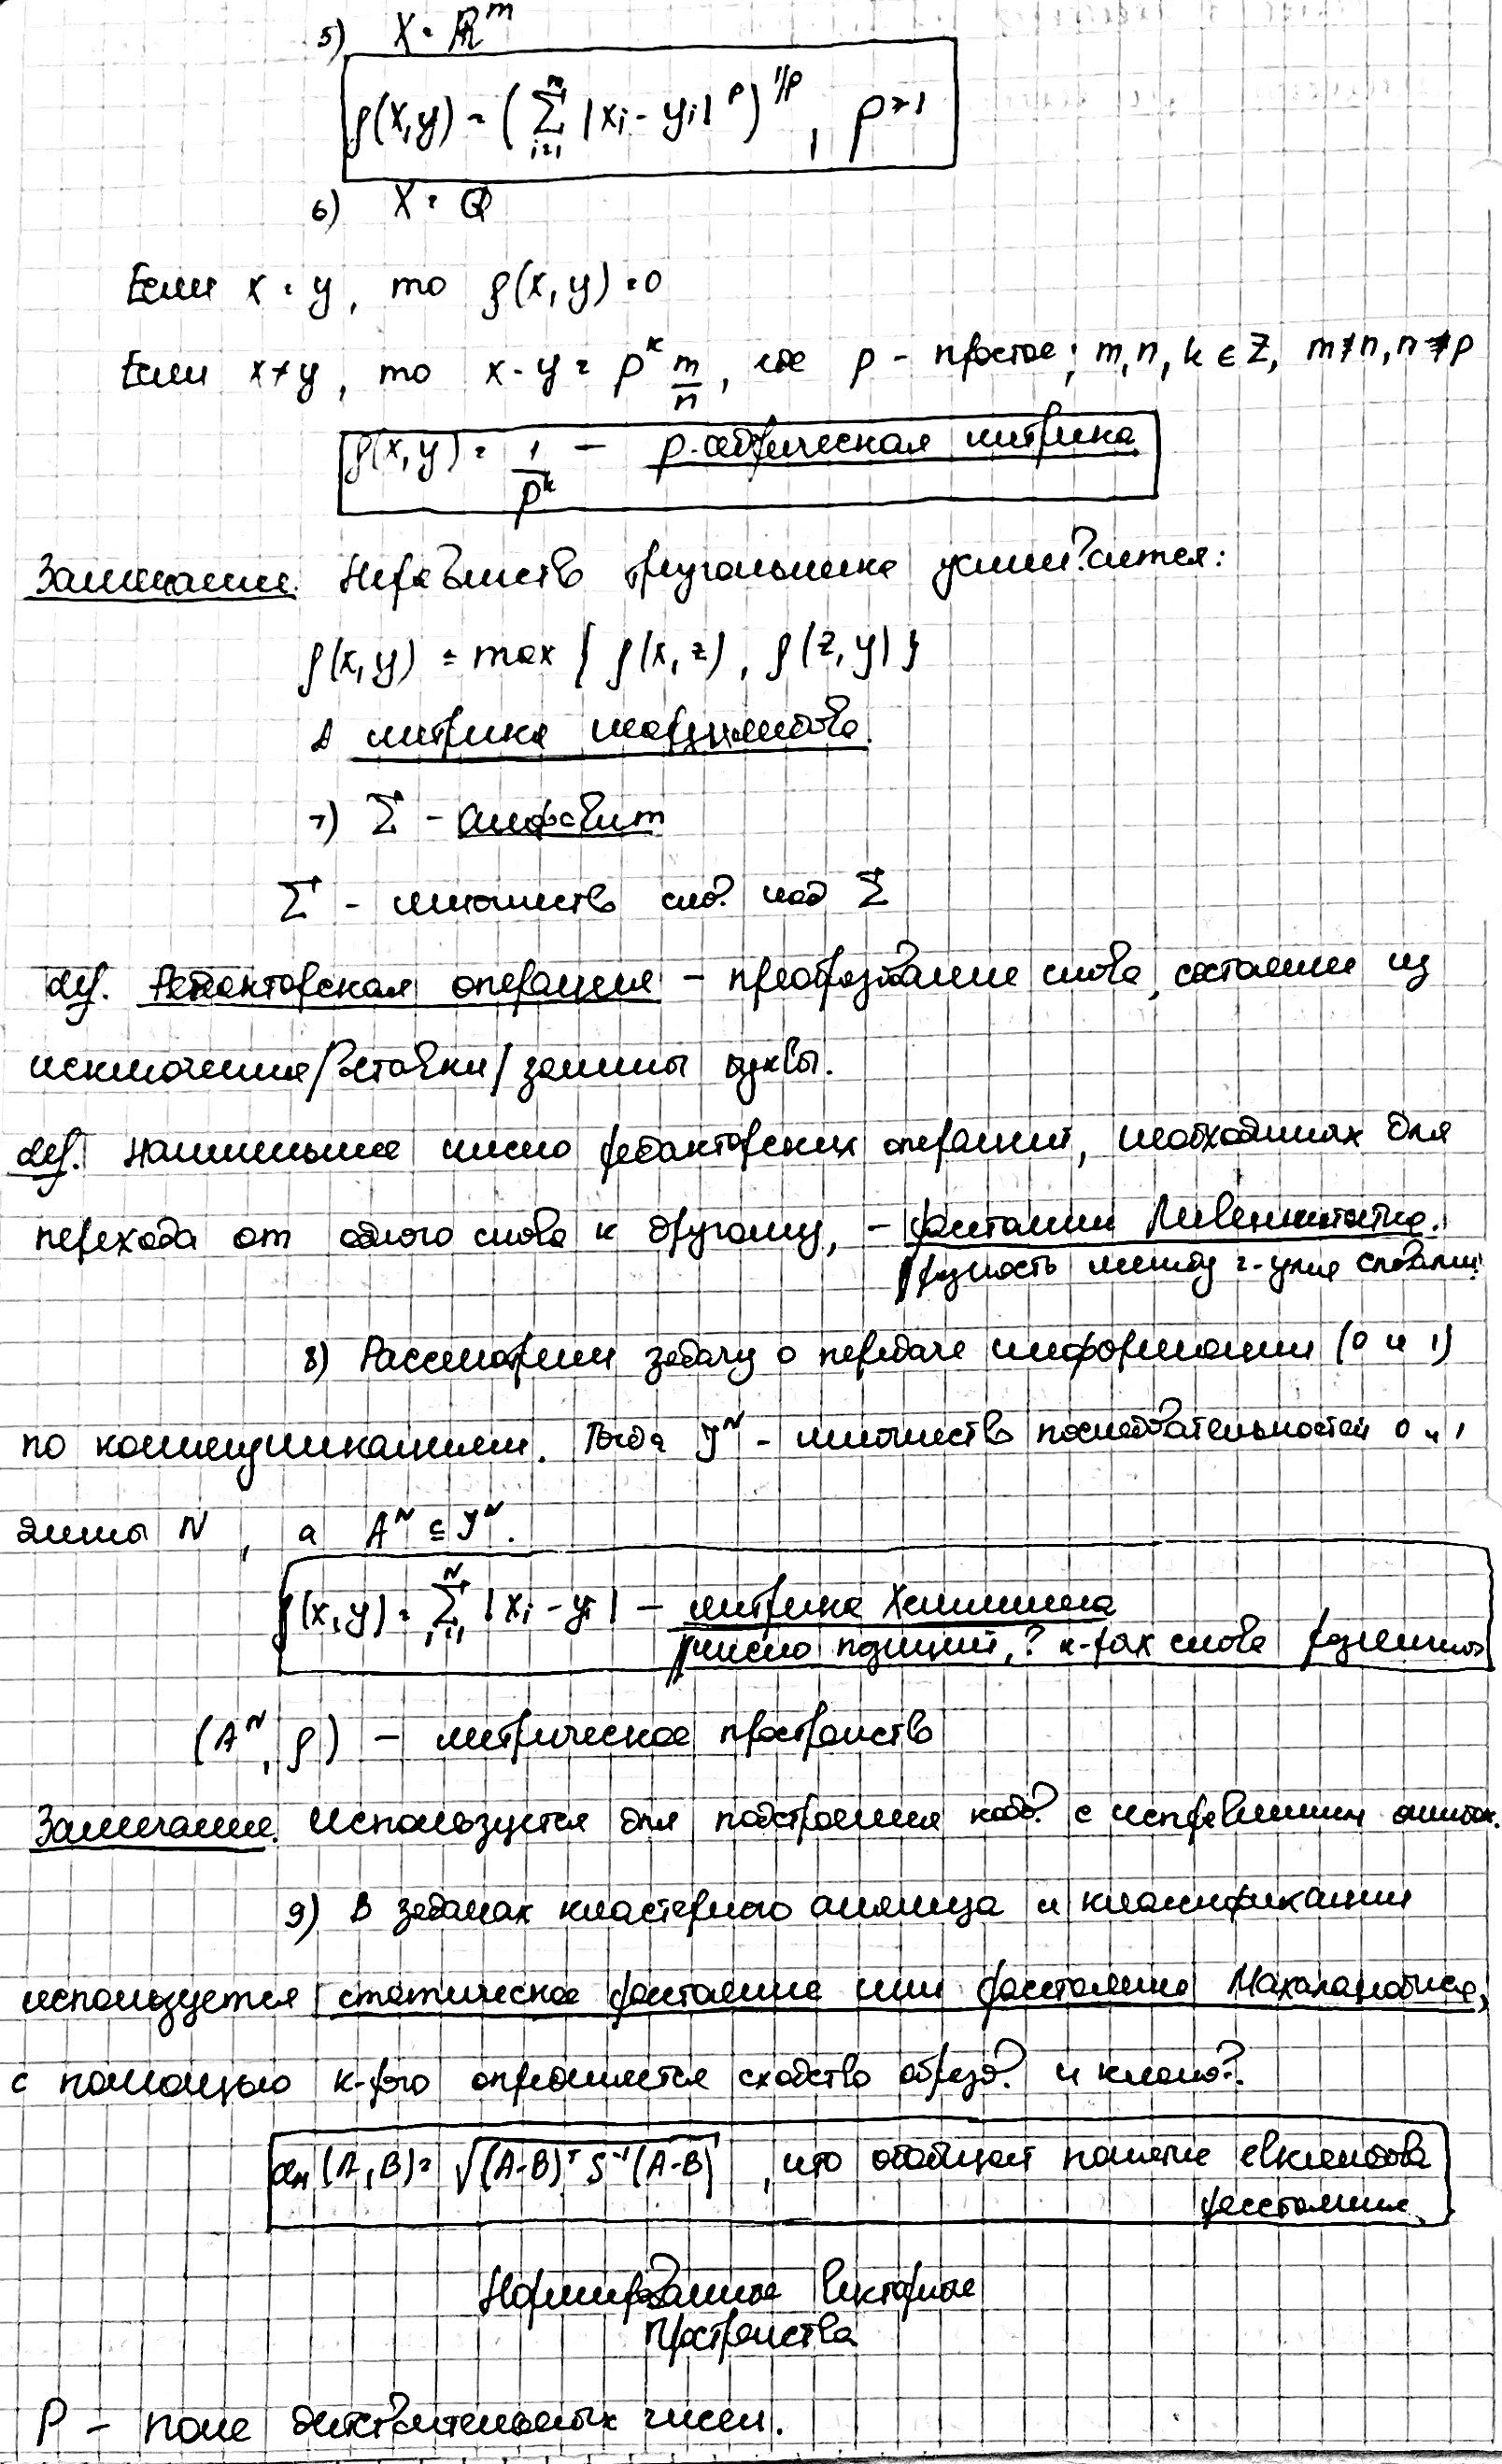 5) X = ℝᵐ
ρ(x,y) = (∑ᵢ₌₁ᵐ |xᵢ - yᵢ|ᵖ)^{1/p}, p ≥ 1
6) X = ℚ
Если x = y, то ρ(x,y) = 0
Если x ≠ y, то x - y = pᵏ m/n, где p - простое; m, n, k ∈ Z, m⋮̸n, n⋮̸p
ρ(x,y) = 1/pᵏ — p-адическая метрика
Замечание. Неравенство треугольника усиливается:
ρ(x,y) = max{ρ(x,z), ρ(z,y)}
метрика
7) Σ - алфавит
Σ - множество слов над Σ
def. Редакторская операция - преобразование слова, состоящее из
исключения/вставки/замены буквы.
def. Наименьшее число редакторских операций, необходимых для
перехода от одного слова к другому, - расстояние Ливенштейна.
разность между 2-умя словами
8) Рассмотрим задачу о передаче информации (0 и 1)
по коммуникациям. Тогда Yᴺ - множество последовательностей 0 и 1
длины N, а Aᴺ ⊆ Yᴺ.
ρ(x,y) = ∑ᵢ₌₁ᴺ |xᵢ - yᵢ| — метрика Хемминга
число позиций, в к-рых слова различны
(Aᴺ, ρ) - метрическое пространство
Замечание. Используется для построения кодов с исправлением ошибок.
9) В задачах кластерного анализа и классификации
используется статическое расстояние или расстояние Махаланобиса,
с помощью к-рого определяется сходство образов и классов.
d_M(A,B) = √((A-B)ᵀ S⁻¹(A-B)), что обобщает понятие евклидова
расстояния.
Нормированные векторные
пространства
P - поле действительных чисел.